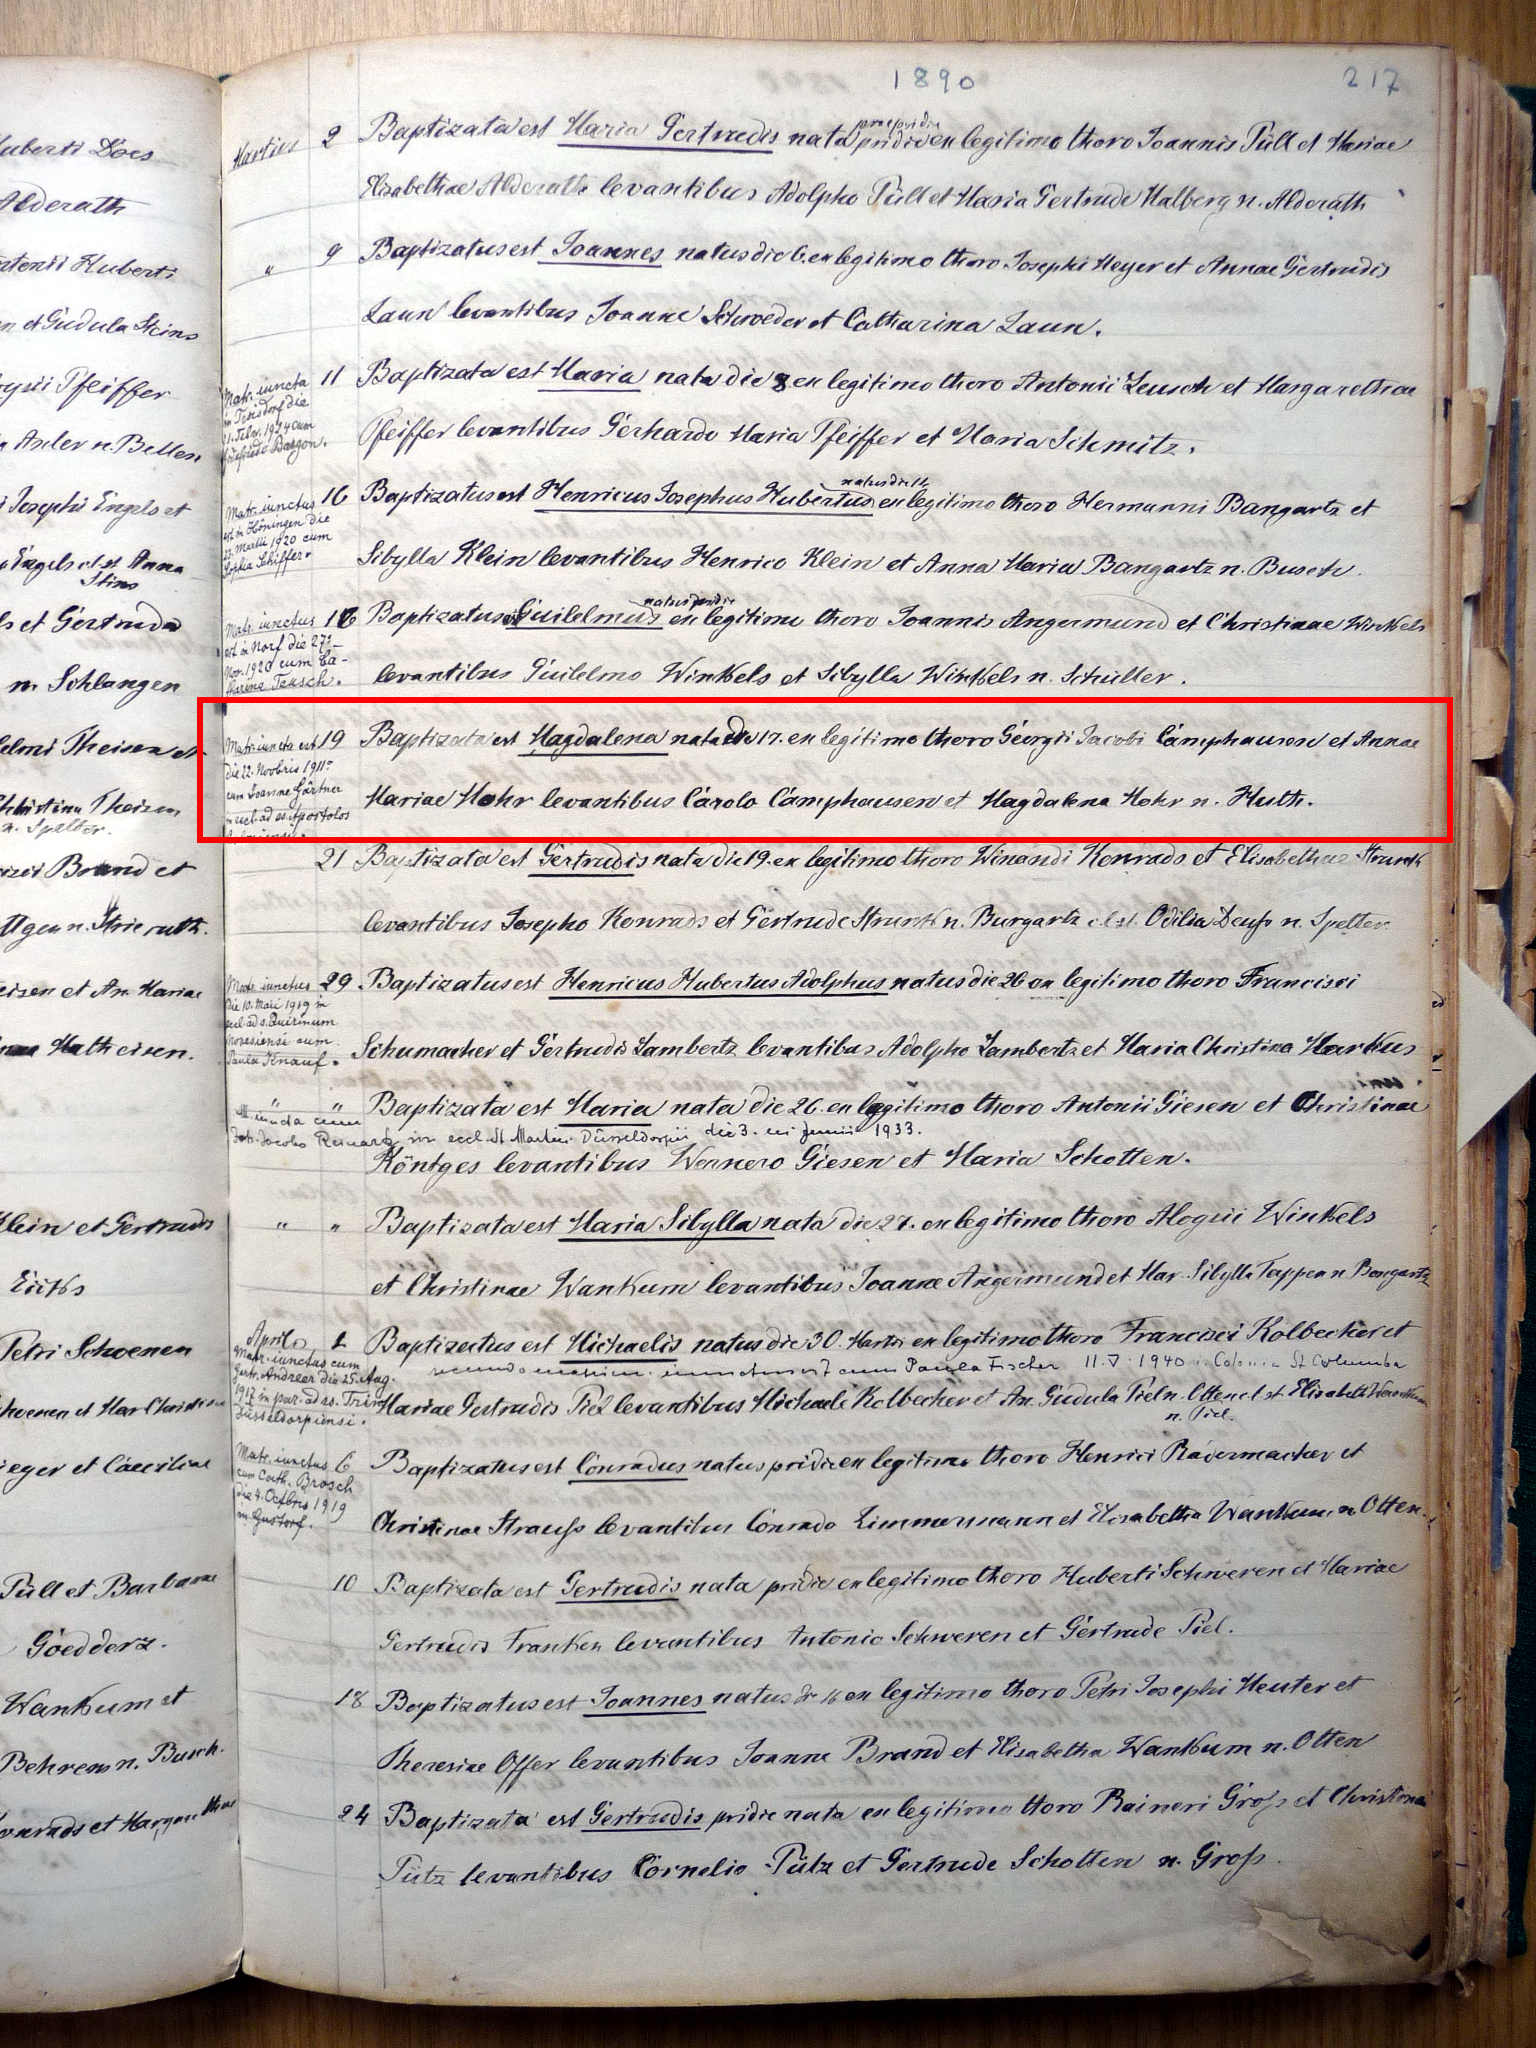 1890
217
Martius 2 Baptizata est Maria Gertrudis nata praepridie pridie ex legitimo thoro Joannis Püll et Mariae
Elisabethae Alderath levantibus Adolpho Püll et Maria Gertrude Malberg n. Alderath
" 9 Baptizatus est Joannes natus die 6. ex legitimo thoro Josephi Meyer et Annae Gertrudis
Laun levantibus Joanne Schroeder et Catharina Laun.
11 Baptizata est Maria nata die 8 ex legitimo thoro Antonii Leusch et Margarethae
Pfeiffer levantibus Gerhardo Maria Pfeiffer et Maria Schmitz.
Matr. iuncta
die
Febr. 1924 cum
natus die 11
16 Baptizatus est Henricus Josephus Hubertus ex legitimo thoro Hermanni Bangartz et
Sibylla Klein levantibus Henrico Klein et Anna Maria Bangartz n. Busch.
Matr. iunctus
est in Höningen die
Martii 1920 cum
Sophia Schiffer.
natus pridie
16 Baptizatus est Guilelmus ex legitimo thoro Joannis Angermund et Christinae Winkels
levantibus Guilelmo Winkels et Sibylla Winkels n. Schüller.
Matr. iunctus
est in Norf die 27
Nov. 1920 cum Ca-
tharina Teusch.
19 Baptizata est Magdalena nata die 17. ex legitimo thoro Georgii Jacobi Camphausen et Annae
Mariae Mohr levantibus Carolo Camphausen et Magdalena Mohr n. Huth.
Matr. iuncta est
die 22. Novbris 1911
cum Joanne Gärtner
in eccl. ad ss. Apostolos
21 Baptizata est Gertrudis nata die 19. ex legitimo thoro Winandi Konrads et Elisabethae Strunk
levantibus Josepho Konrads et Gertrude Strunk n. Burgartz Odilia Deuss n. Spelter
29 Baptizatus est Henricus Hubertus Adolphus natus die 26 ex legitimo thoro Francisci
Schumacher et Gertrudis Lambertz levantibus Adolpho Lambertz et Maria Christina Markus
Matr. iunctus
die 10. Maii 1919 in
eccl. ad s. Quirinum
Novesiensi cum
Paula Knauf.
" " Baptizata est Maria nata die 26. ex legitimo thoro Antonii Giesen et Christinae
iuncta cum
Jacobo in eccl. St Martin Düsseldorpii die 3. Junii 1933.
Köntges levantibus Wernero Giesen et Maria Schotten.
" " Baptizata est Maria Sibylla nata die 27. ex legitimo thoro Aloysii Winkels
et Christinae Wankum levantibus Joanne Angermund et Mar. Sibylla Tappen n. Bongartz
Aprilis 1 Baptizatus est Michaelis natus die 30. Martii ex legitimo thoro Francisci Kolbecher et
secundo matrim. iunctus est cum Paula Fischer 11. V. 1940 in Colonia St Columba
Mariae Gertrudis Piel levantibus Michaele Kolbecher et An. Gudula Piel n. Otten et Elisabeth
n. Piel.
Matr. iunctus cum
Gertr. Andreer die 25. Aug.
1917 in par. ad ss. Trinit.
Düsseldorpiensi.
6 Baptizatus est Conradus natus pridie ex legitimo thoro Henrici Radermacher et
Christinae Strauss levantibus Conrado Zimmermann et Elisabetha Wankum n. Otten.
Matr. iunctus
cum Cath. Brosch
die 4. Octbris 1919
in Gustorf.
10 Baptizata est Gertrudis nata pridie ex legitimo thoro Huberti Schweren et Mariae
Gertrudis Franken levantibus Antonio Schweren et Gertrude Piel.
18 Baptizatus est Joannes natus die 16 ex legitimo thoro Petri Josephi Heuter et
Theresiae Offer levantibus Joanne Brand et Elisabetha Wankum n. Otten
24 Baptizata est Gertrudis pridie nata ex legitimo thoro Raineri Gross et Christinae
Pütz levantibus Cornelio Pütz et Gertrude Schotten n. Gross.
Huberti Does
Alderath
Antonii Huberti
et Gudula Steins
Pfeiffer
Axler n. Bellen
Josephi Engels et
Engels et Anna
Stins
et Gertrudis
n. Schlangen
Theisen et
Christina Theisen
n. Spelter.
Brand et
n. Strierath.
et An. Mariae
Matheisen.
Klein et Gertrudis
Petri Schoenen
Schoenen et Mar Christina
et Caeciliae
Püll et Barbarae
Goedderz.
Wankum et
Behrens n. Busch.
Konrads et Margarethae